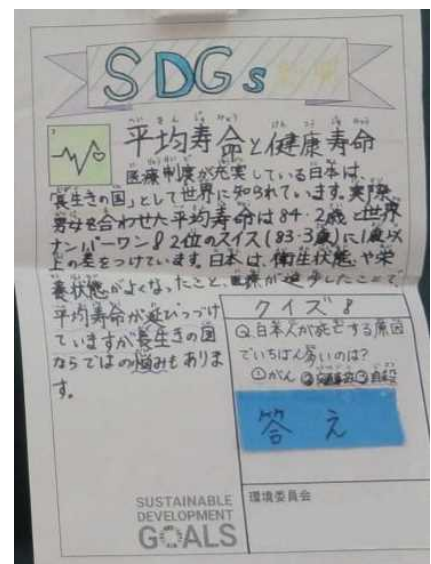 SDGs
平均寿命と健康寿命
医療制度が充実している日本は、
「長生きの国」として世界に知られています。実際、
男女を合わせた平均寿命は84.2歳と世界
ナンバーワン！2位のスイス(83.3歳)に1歳以
上の差をつけています。日本は、衛生状態や栄
養状態がよくなったこと、医療が進歩したことで
平均寿命が延びつづけ
ていますが長生きの国
ならではの悩みもありま
す。
クイズ！
Q.日本人が死亡する原因
でいちばん多いのは?
①がん ②交通事故③自殺
答え
環境委員会
SUSTAINABLE
DEVELOPMENT
GOALS